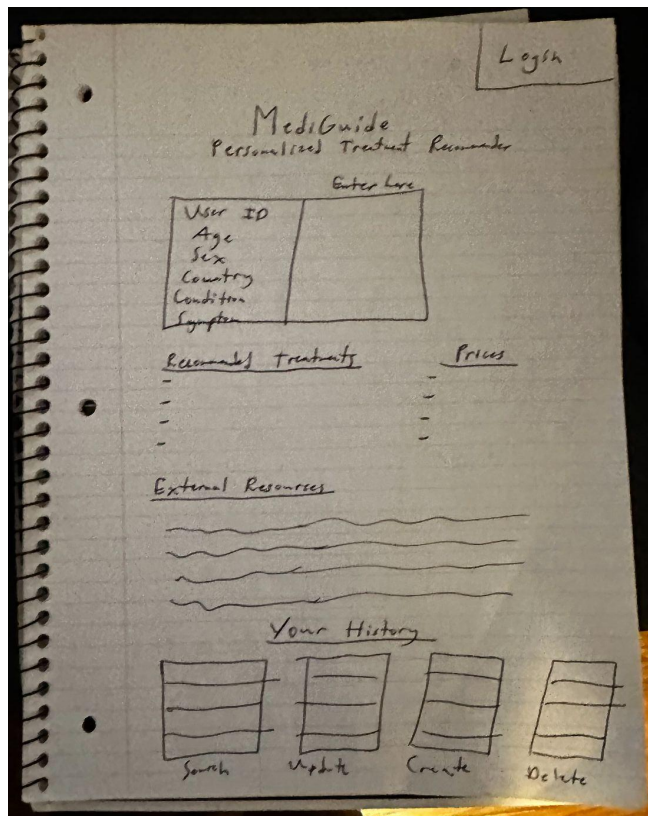 Login
MediGuide
Personalized Treatment Recommender
Enter here
User ID
Age
Sex
Country
Condition
Symptom
Recommended Treatments
Prices
External Resources
Your History
Search Update Create Delete